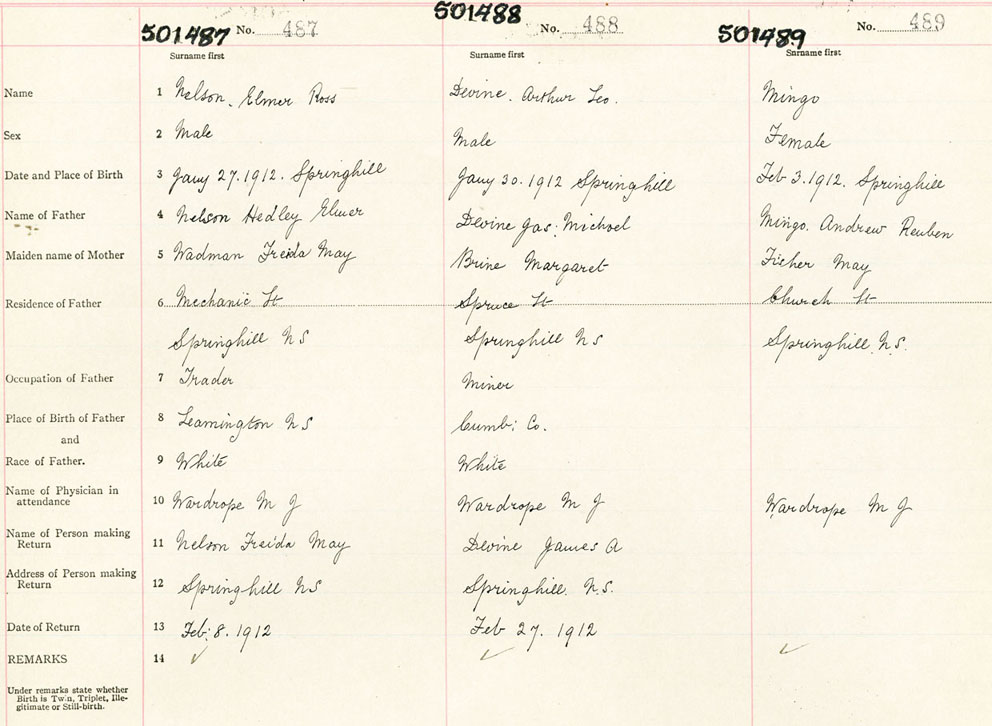 501487 No. 487 501488 No. 488 501489 No. 489
Surname first Surname first Surname first
Name 1 Nelson, Elmer Ross Devine, Arthur Leo. Mingo
Sex 2 Male Male Female
Date and Place of Birth 3 Jany 27.1912. Springhill Jany 30.1912 Springhill Feb 3.1912. Springhill
Name of Father 4 Nelson Hedley Elmer Devine Jas. Michael Mingo. Andrew Reuben
Maiden name of Mother 5 Wadman Freida May Brine Margaret Fisher May
Residence of Father 6 Mechanic St Spruce St Church St
Springhill NS Springhill NS Springhill N.S.
Occupation of Father 7 Trader Miner
Place of Birth of Father 8 Leamington NS Cumb: Co.
and
Race of Father. 9 White White
Name of Physician in
attendance 10 Wardrope M J Wardrope M J Wardrope M J
Name of Person making
Return 11 Nelson Freida May Devine James A
Address of Person making
Return 12 Springhill NS Springhill. N.S.
Date of Return 13 Feb: 8. 1912 Feb 27. 1912
REMARKS 14 ✓ ✓ ✓
Under remarks state whether
Birth is Twin, Triplet, Ille-
gitimate or Still-birth.